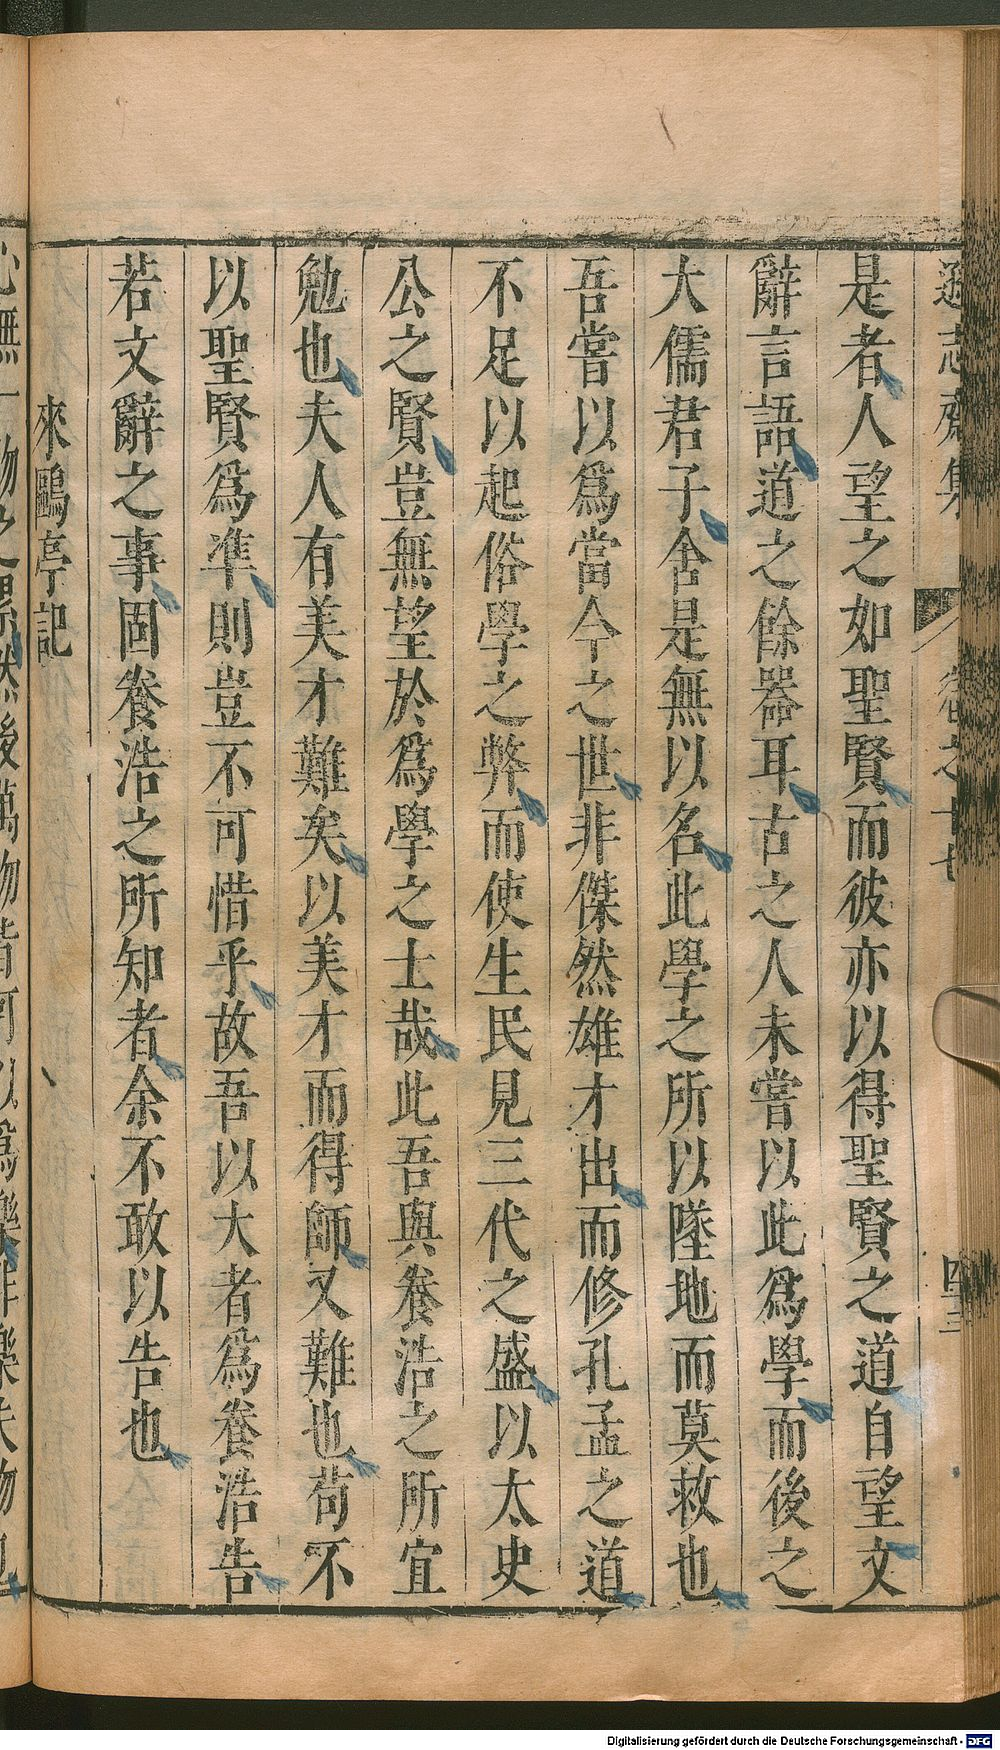 遜志齋集 卷之十七 四三
是者人望之如聖賢而彼亦以得聖賢之道自望文
辭言語道之餘器耳古之人未嘗以此爲學而後之
大儒君子舍是無以名此學之所以墜地而莫救也
吾嘗以爲當今之世非傑然雄才出而修孔孟之道
不足以起俗學之弊而使生民見三代之盛以太史
公之賢豈無望於爲學之士哉此吾與養浩之所宜
勉也夫人有美才難矣以美才而得師又難也苟不
以聖賢爲準則豈不可惜乎故吾以大者爲養浩告
若文辭之事固養浩之所知者余不敢以告也
來鷗亭記
心無一物之累然後萬物皆可以爲樂非樂夫物也
Digitalisierung gefördert durch die Deutsche Forschungsgemeinschaft - DFG